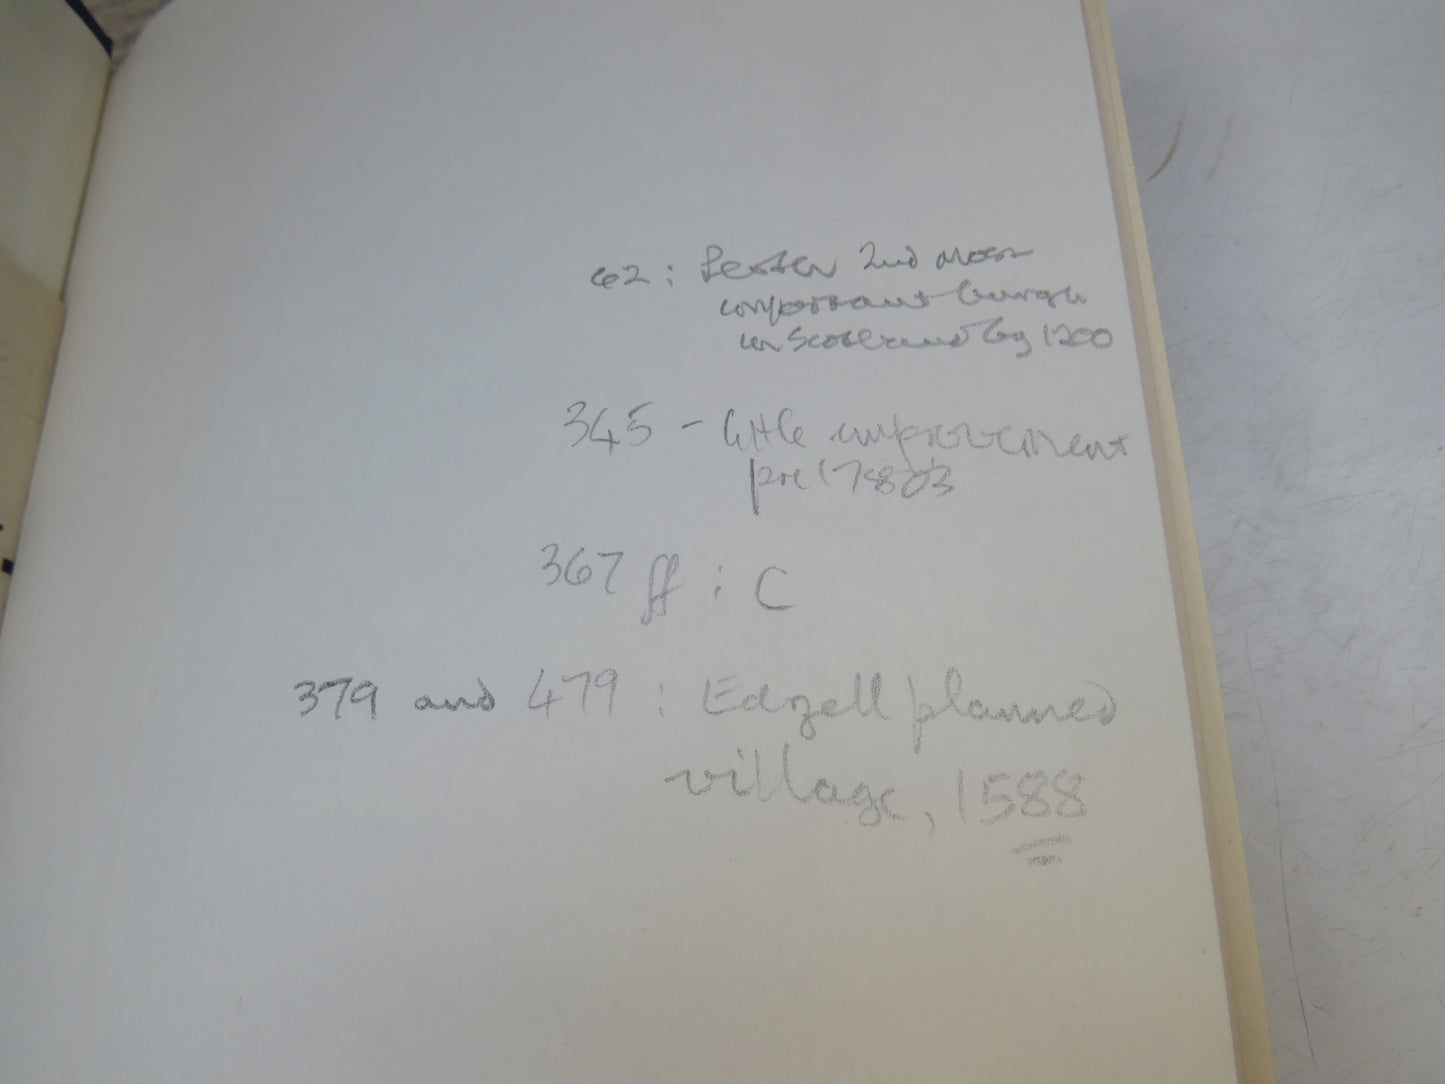 62: 2nd most
important burgh
in Scotland by 1200
345 - little improvement
pre 1780s
367 ff : C
379 and 479 : Edzell planned
village, 1588